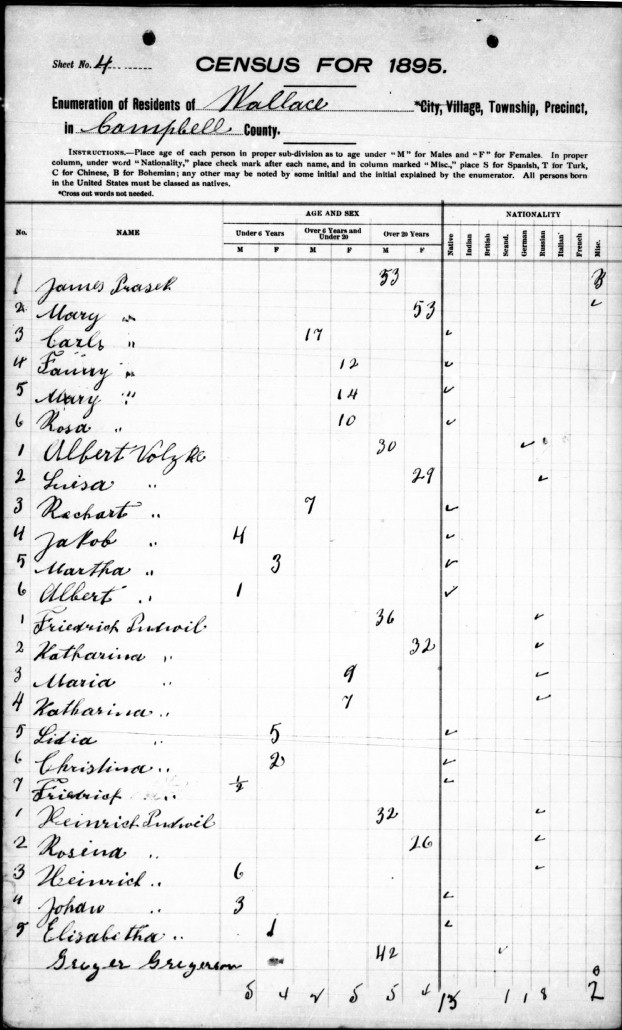 Sheet No. 4
CENSUS FOR 1895.
Enumeration of Residents of Wallace *City, Village, Township, Precinct,
in Campbell County.
INSTRUCTIONS.—Place age of each person in proper sub-division as to age under "M" for Males and "F" for Females. In proper
column, under word "Nationality," place check mark after each name, and in column marked "Misc.," place S for Spanish, T for Turk,
C for Chinese, B for Bohemian; any other may be noted by some initial and the initial explained by the enumerator. All persons born
in the United States must be classed as natives.
*Cross out words not needed.
No. NAME AGE AND SEX NATIONALITY
Under 6 Years Over 6 Years and Under 20 Over 20 Years
M F M F M F Native Indian British Scand. German Russian Italian French Misc.
1 James Prasek 53 B
2 Mary " 53 ✓
3 Carls " 17 ✓
4 Fanny " 12 ✓
5 Mary " 14 ✓
6 Rosa " 10 ✓
1 Albert Volzke 30 ✓
2 Luisa " 29 ✓
3 Rechart " 7 ✓
4 Jakob " 4 ✓
5 Martha " 3 ✓
6 Albert " 1 ✓
1 Friedrich Pudwil 36 ✓
2 Katharina " 32 ✓
3 Maria " 9 ✓
4 Katharina " 7 ✓
5 Lidia " 5 ✓
6 Christina " 2 ✓
7 Friedrich " ½ ✓
1 Heinrich Pudwil 32 ✓
2 Rosina " 26 ✓
3 Heinrich " 6 ✓
4 Johan " 3 ✓
5 Elisabitha " 1 ✓
Greger Gregerson 42 ✓
5 4 2 5 5 4 15 1 1 8 2